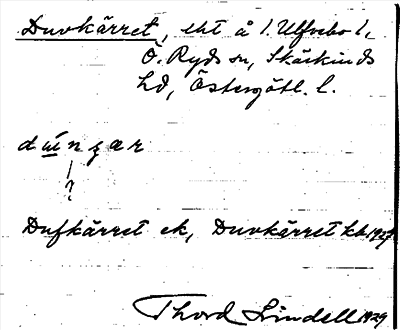 Duvkärret, eht å 1. Ulfsbo 1,
Ö. Ryds sn, Skärkinds
hd, Östergötl. l.
?
Dufkärret ek, Duvkärret kb 1927
Thord Lindell 1929